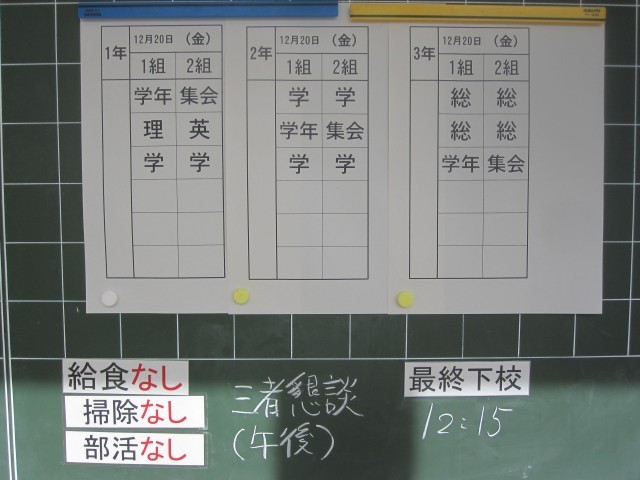 1年 12月20日 (金)
1組 2組
学年 集会
理 英
学 学
2年 12月20日 (金)
1組 2組
学 学
学年 集会
学 学
3年 12月20日 (金)
1組 2組
総 総
総 総
学年 集会
給食なし
掃除なし
部活なし
三者懇談
(午後)
最終下校
12:15